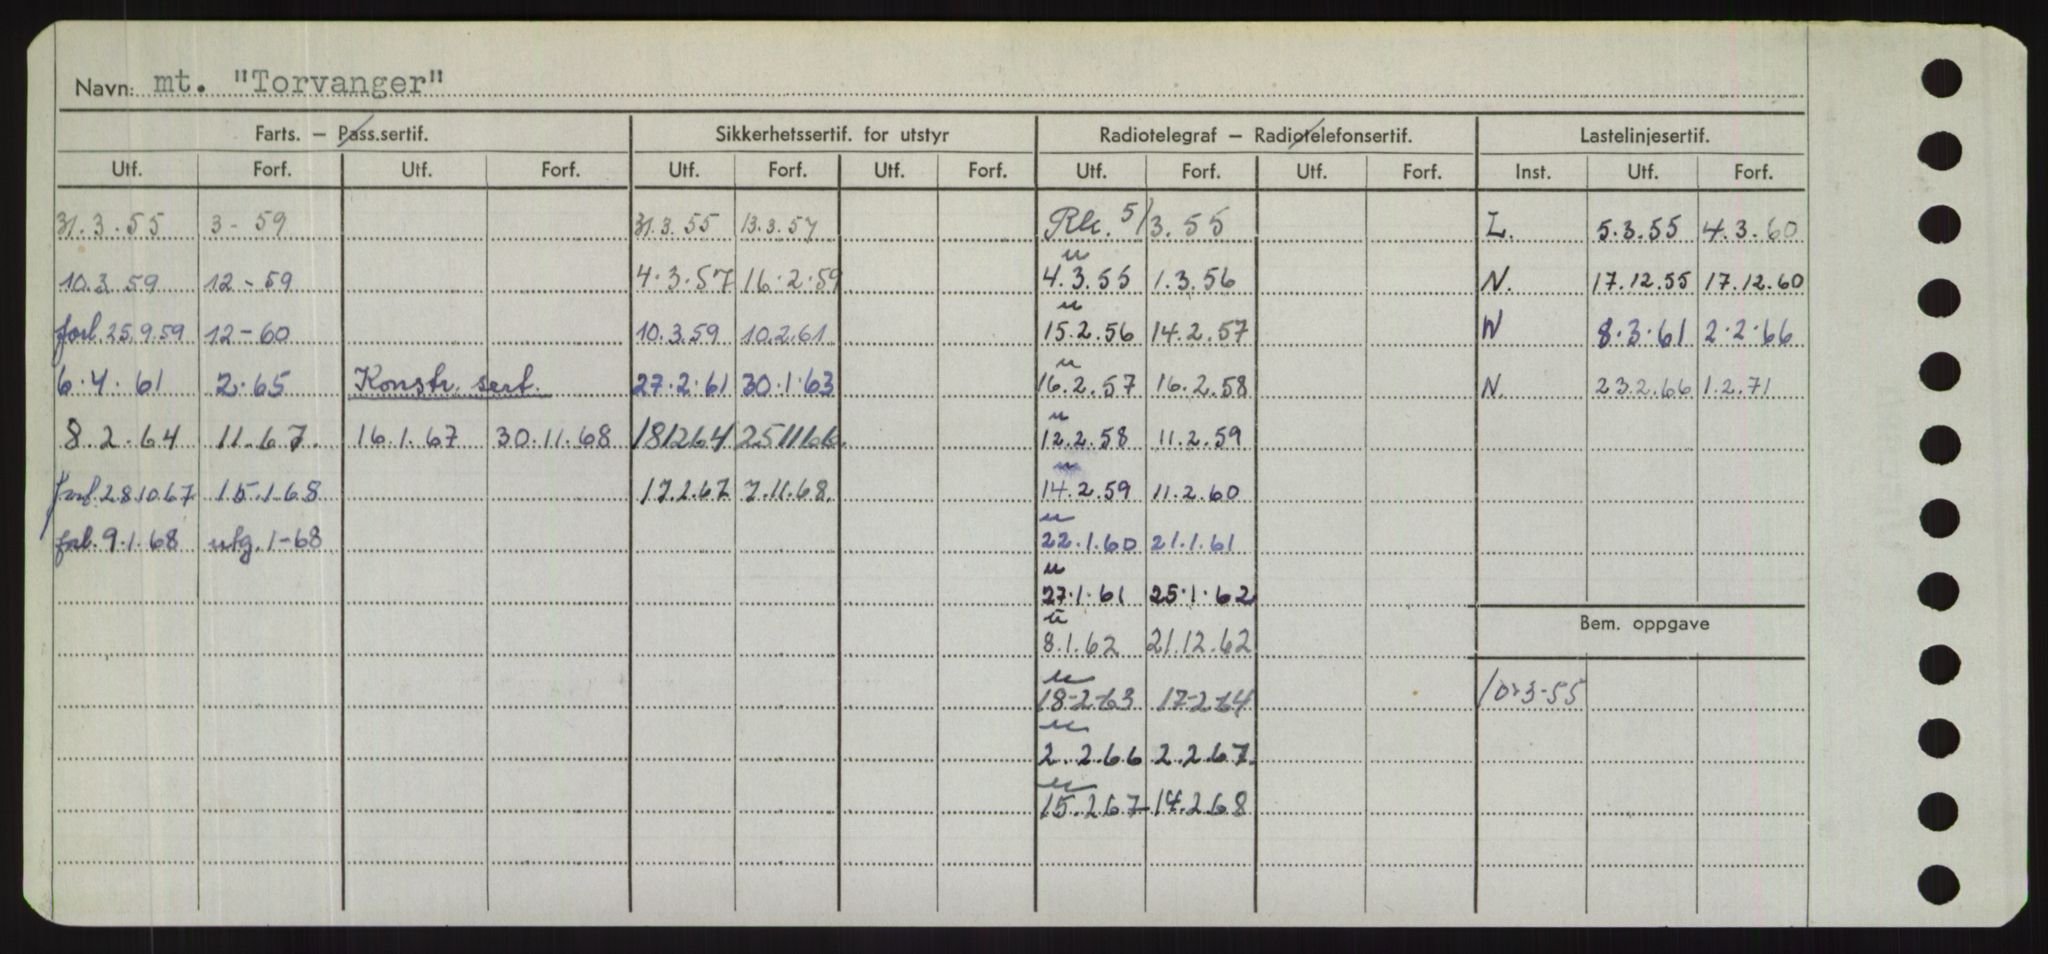 Navn: mt. "Torvanger"
Farts. — Pass.sertif. Sikkerhetssertif. for utstyr Radiotelegraf — Radiotelefonsertif. Lastelinjesertif.
Utf. Forf. Utf. Forf. Utf. Forf. Utf. Forf. Utf. Forf. Utf. Forf. Inst. Utf. Forf.
31.3.55 3-59 31.3.55 13.3.57 5/3.55 L. 5.3.55 4.3.60
u
10.3.59 12-59 4.3.57 16.2.59 4.3.55 1.3.56 N. 17.12.55 17.12.60
u
forl.25.9.59 12-60 10.3.59 10.2.61 15.2.56 14.2.57 N 8.3.61 2.2.66
u
6.4.61 2.65 Konstr. sert. 27.2.61 30.1.63 16.2.57 16.2.58 N. 23.2.66 1.2.71
u
8.2.64 11.67. 16.1.67 30.11.68 181264 251166 12.2.58 11.2.59
u
forl.28.10.67 15.1.68 17.2.67 7.11.68. 14.2.59 11.2.60
u
forl.9.1.68 utg.1-68 22.1.60 21.1.61
u
27.1.61 25.1.62
u
Bem. oppgave
8.1.62 21.12.62
u
18-2-63 17-2-64 10-3-55
u
2.2.66 2.2.67.
u
15.2.67 14.2.68